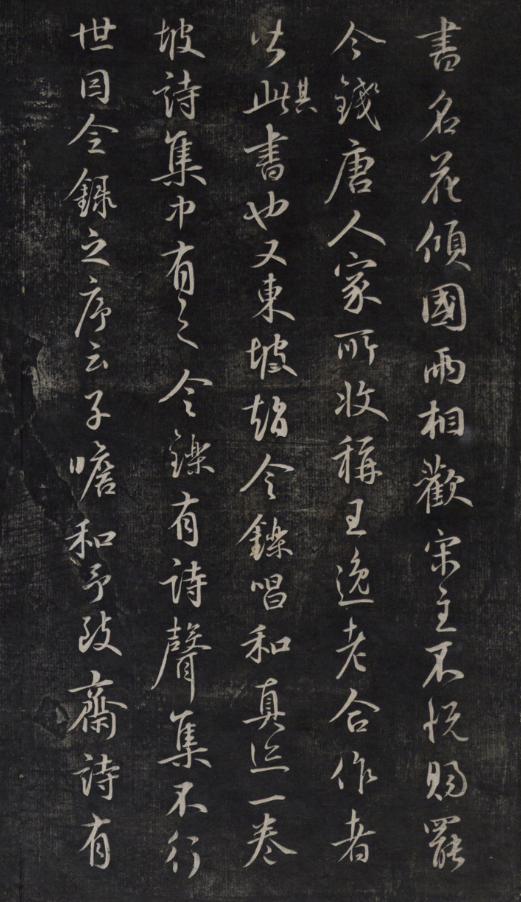 書名花傾國兩相歡宋主不悅賜罷
今錢唐人家所收稱王逸老合作者
皆此其書也又東坡趙令鑠唱和真跡一卷
坡詩集中有之令鑠有詩聲集不行
世因全錄之序云子瞻和予致齋詩有